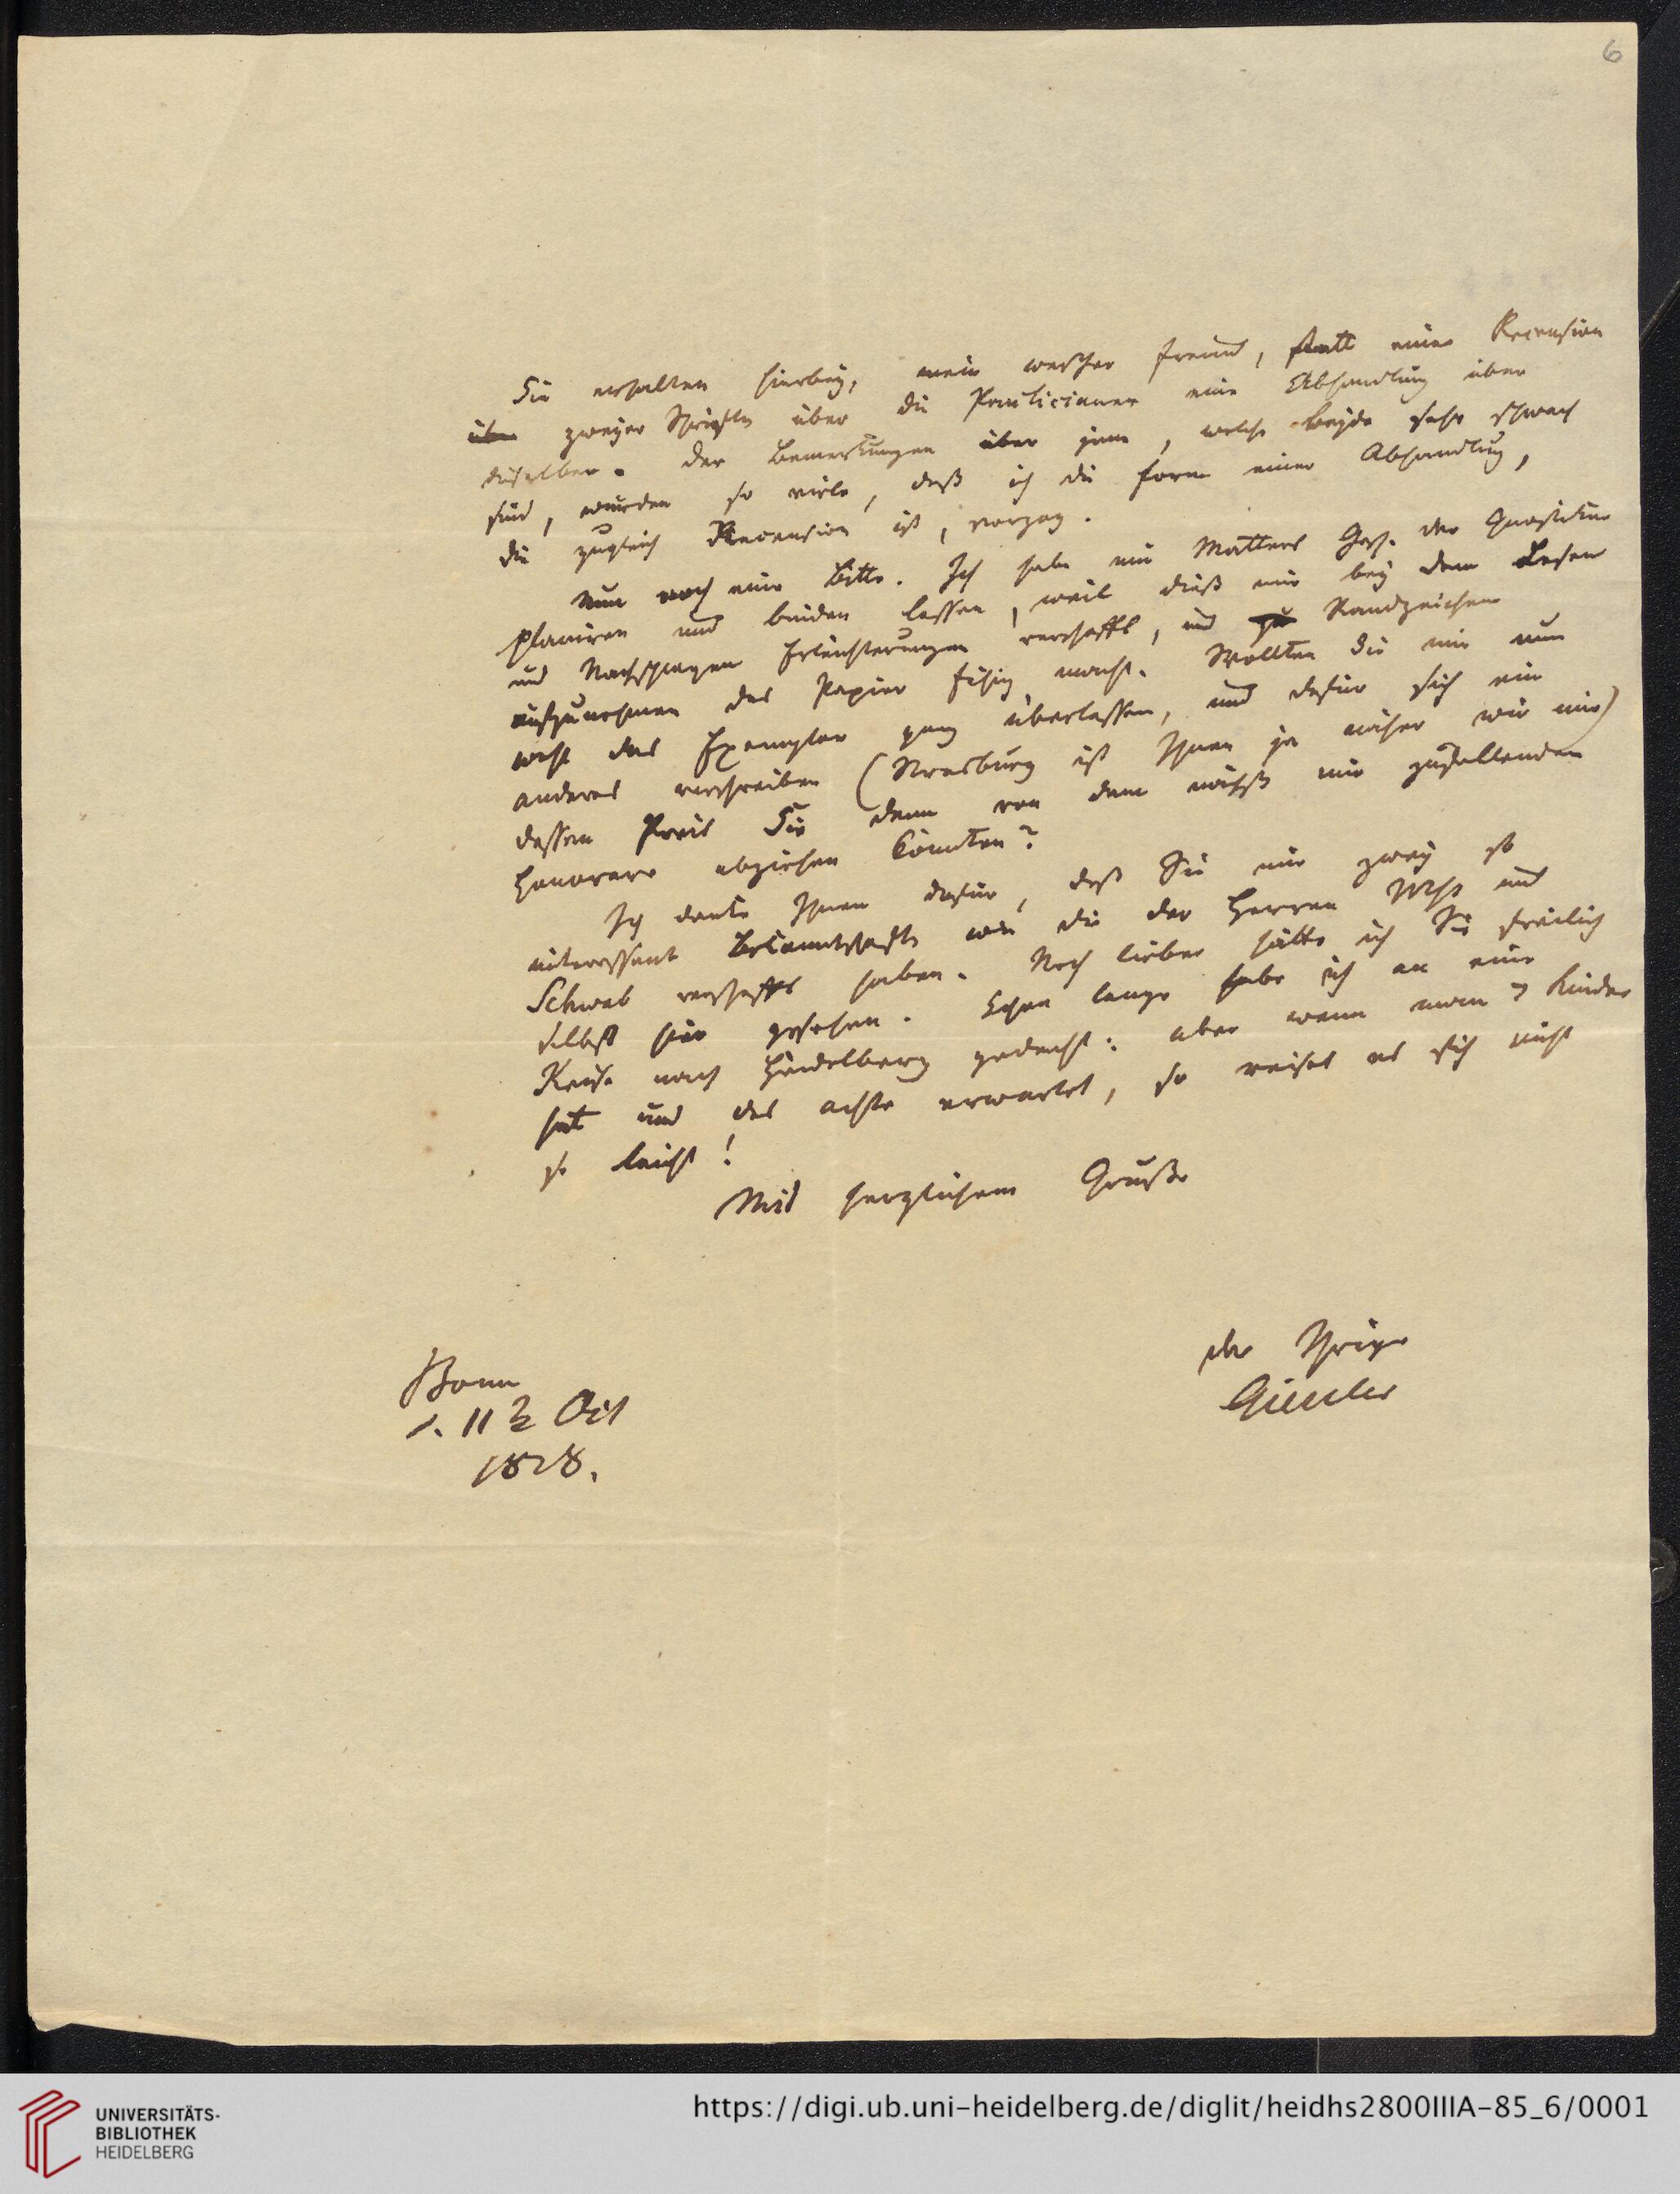 6
Sie erhalten hierbey, mein werther Freund, statt einer Recension
über zweyer Schriften über die Paulicianer eine Abhandlung über
dieselben. Der Bemerkungen über jene, welche beyde sehr schwach
sind, wurden so viele, daß ich die Form einer Abhandlung,
die zugleich Recension ist, vorzog.
Nun noch eine Bitte. Ich habe mir Matters Gesch. des Gnosticism
planiren und binden lassen, weil dieß mir bey dem Lesen
und Nachschlagen Erleichterungen verschafft, und zu Randzeichen
aufzunehmen das Papier fähig macht. Wollten Sie mir nun
nicht das Exemplar ganz überlassen, und dafür sich ein
anderes verschreiben (Strasburg ist Ihnen ja näher wie mir)
dessen Preis Sie denn von dem nächst mir zufallenden
Honorare abziehen könnten?
Ich danke Ihnen dafür, daß Sie mir zwey so
interessante Bekanntschaften wie die der Herren und
Schwab verschafft haben. Noch lieber hätte ich Sie freilich
selbst hier gesehen. Schon lange habe ich an eine
Reise nach Heidelberg gedacht: aber wenn man 7 Kinder
hat und das achte erwartet, so reiset es sich nicht
so leicht!
Mit herzlichem Gruße
der Ihrige
Gieseler
Bonn
d. 11 Oct
1828.
UNIVERSITÄTS-
BIBLIOTHEK
HEIDELBERG
https://digi.ub.uni-heidelberg.de/diglit/heidhs2800IIIA-85_6/0001